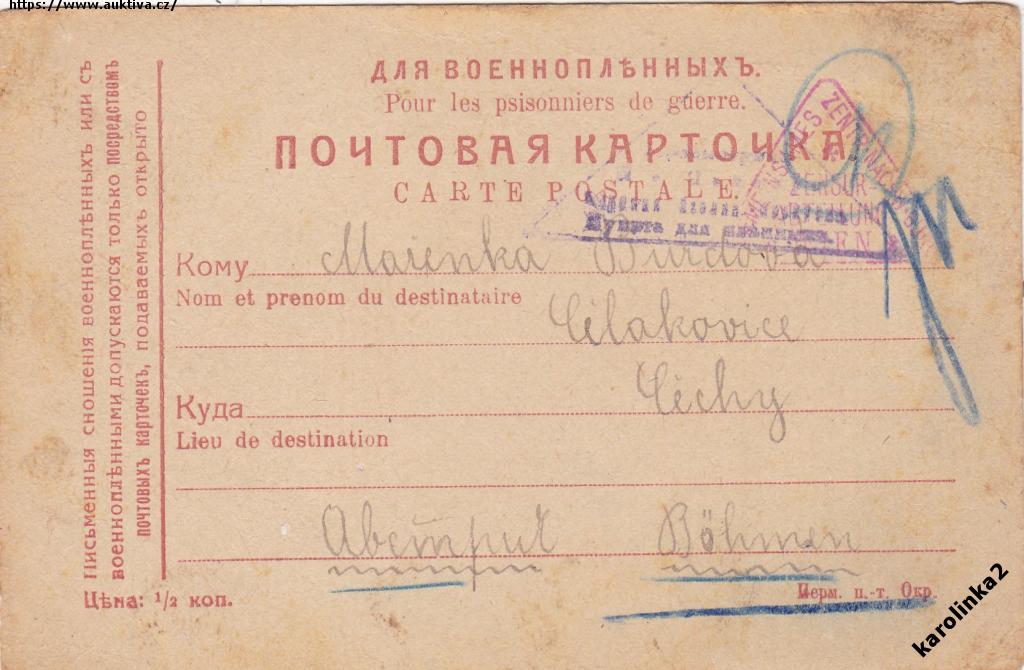 https://www.auktiva.cz/
ДЛЯ ВОЕННОПЛѢННЫХЪ.
Pour les psisonniers de guerre.
ПОЧТОВАЯ КАРТОЧКА.
CARTE POSTALE.
ZENTRAL
ZENSUR
ABTEILUNG
WIEN
Пункта для
Кому Marenka Burdova
Nom et prenom du destinataire
Célakovice
Куда Čechy
Lieu de destination
Австрия Böhmen
Перм. п.-т. Окр.
Письменныя сношенія военноплѣнныхъ или съ
военноплѣнными допускаются только посредствомъ
почтовыхъ карточекъ, подаваемыхъ открыто
Цѣна: 1/2 коп.
karolinka2